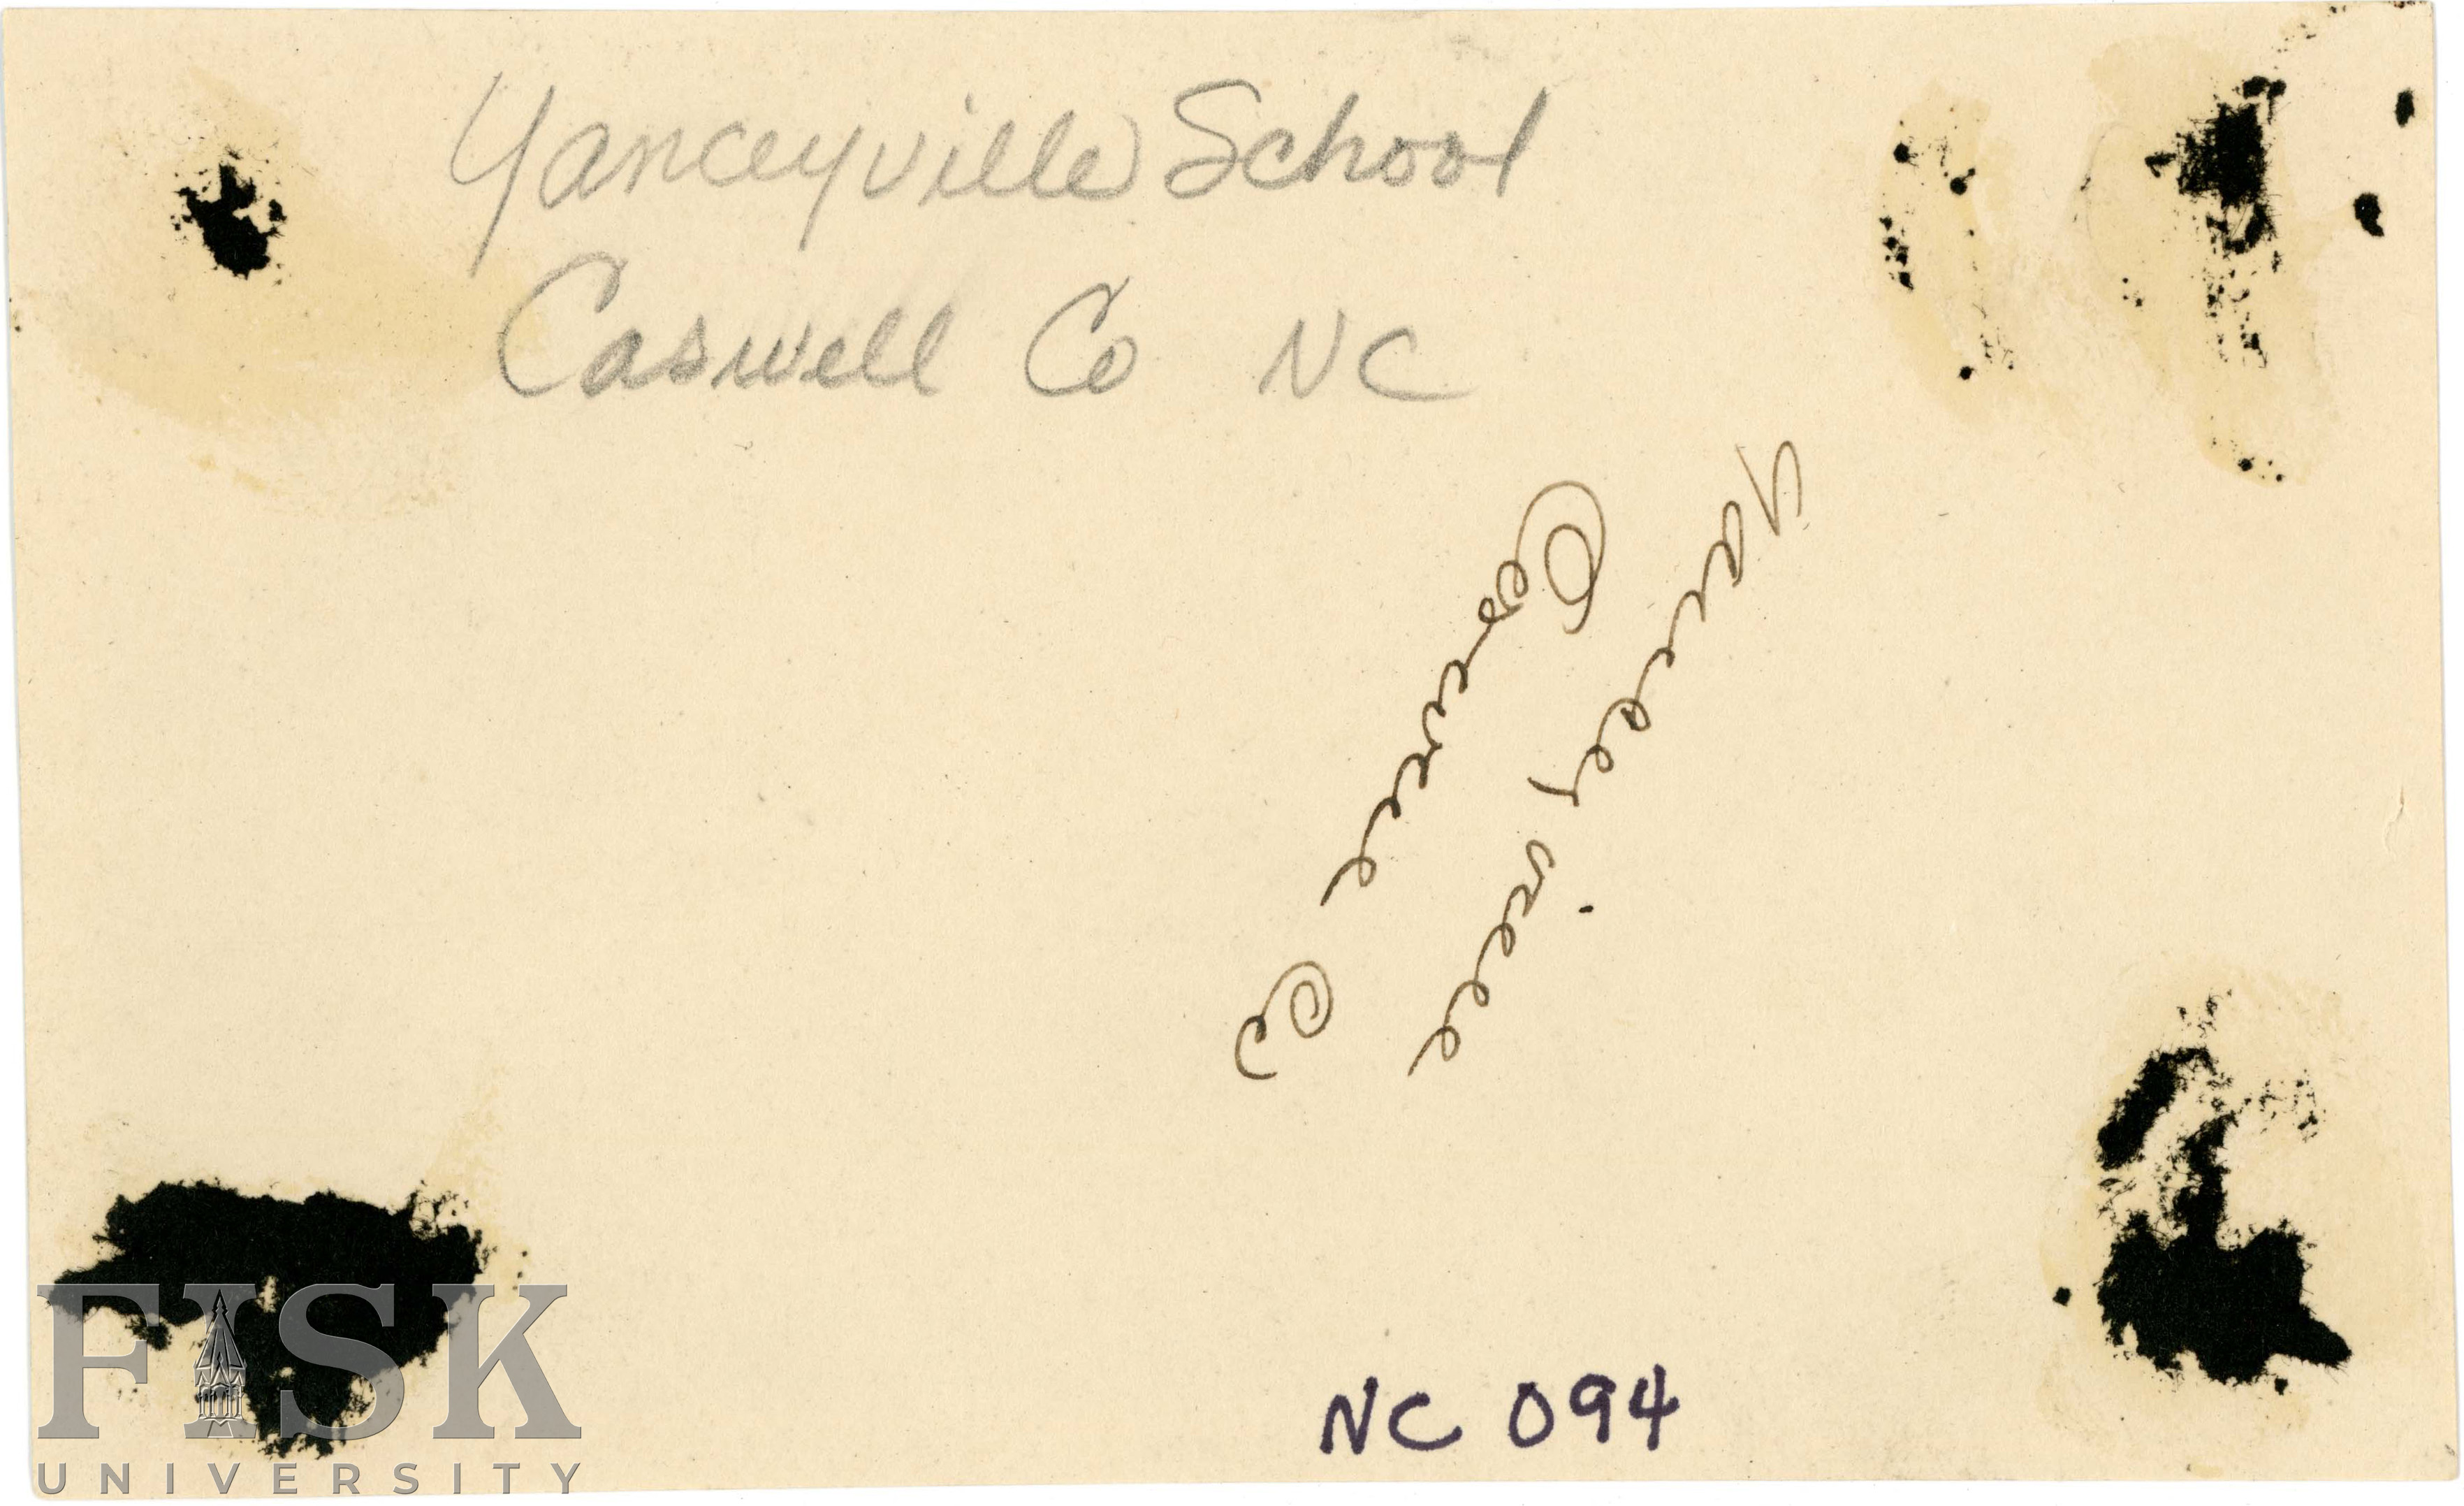 Yanceyville School
Caswell Co NC
Yanceyville
Caswell Co
NC 094
FISK
UNIVERSITY